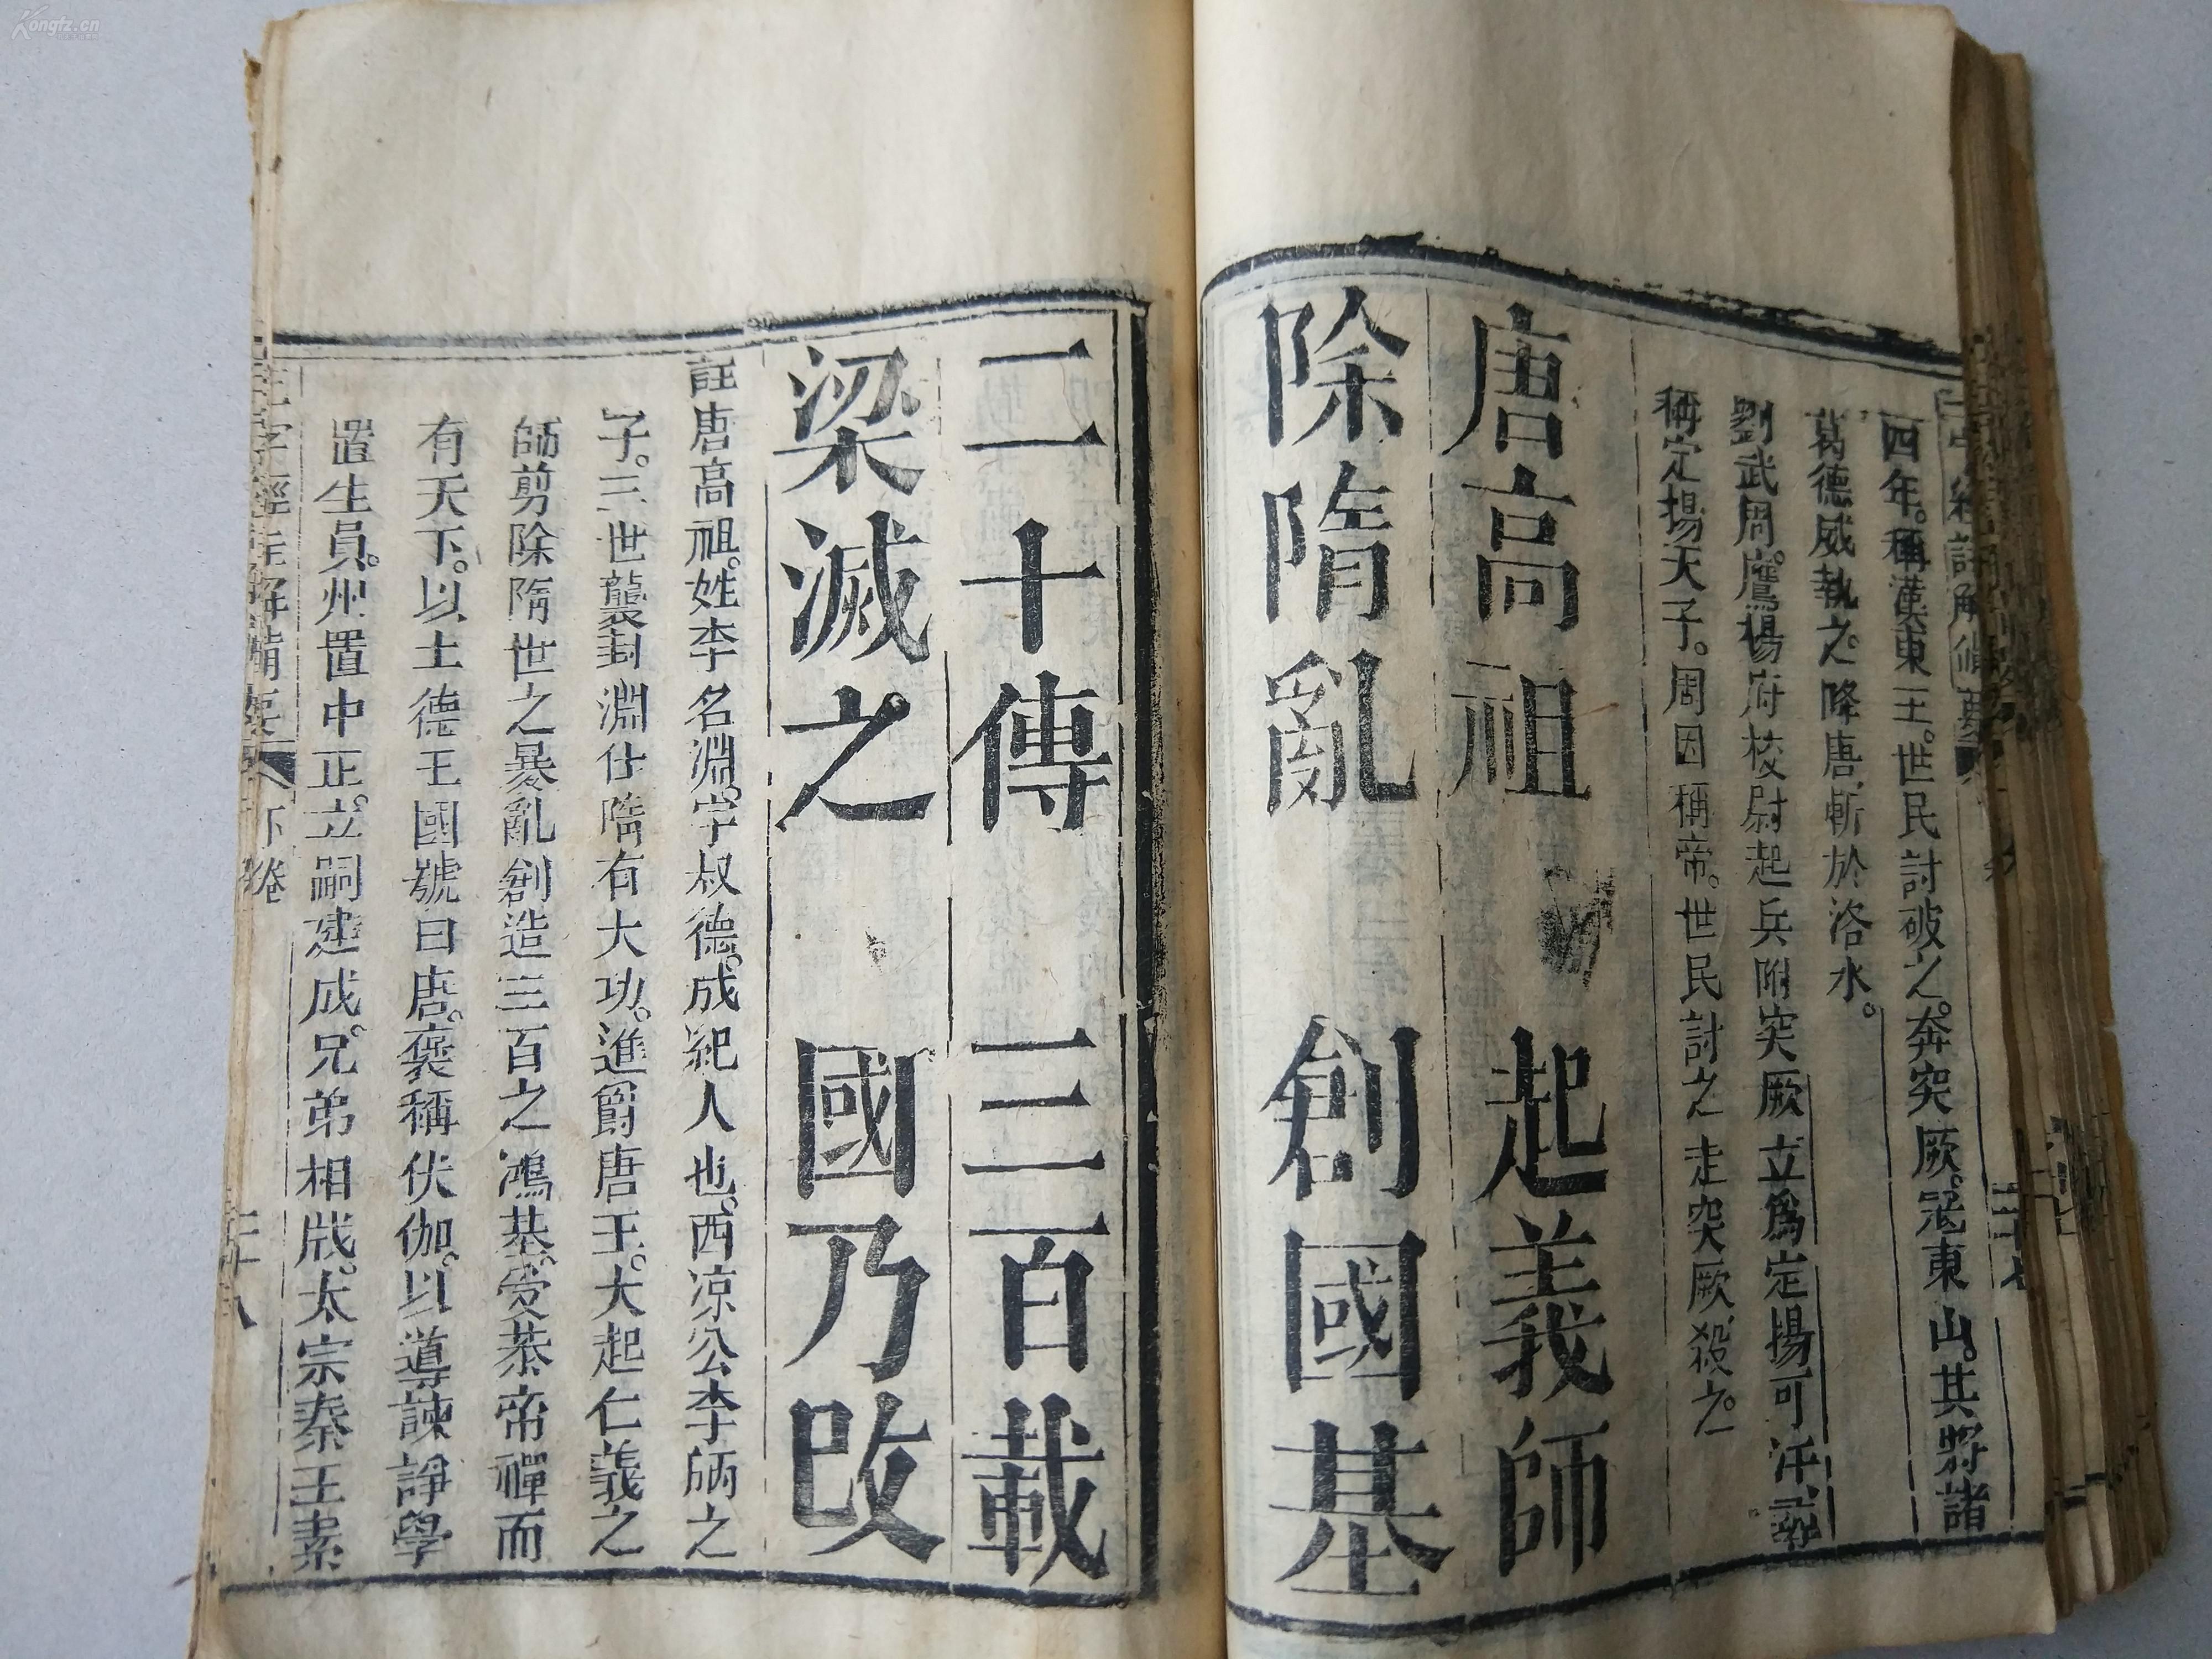 四年。稱漢東王。世民討破之。奔突厥。冦東山。其將諸
葛德威執之。降唐斬於洛水。
劉武周。鷹揚府校尉起兵附突厥立爲定揚可汗
稱定揚天子。周因稱帝。世民討之走突厥殺之。
唐高祖 起義師
除隋亂 創國基
二十傳 三百載
梁滅之 國乃改
註唐高祖。姓李名淵。字叔德。成紀人也。西凉公李㬂之
子。三世襲封淵仕隋有大功。進爵唐王。大起仁義之
師剪除隋世之暴亂創造三百之鴻基。受恭帝禪而
有天下。以土德王國號曰唐。褒稱伏伽。以導諫諍學
置生員。州置中正。立嗣建成。兄弟相戕。太宗秦王素
三字經註解備要 下卷 二十八
Kongfz.cn